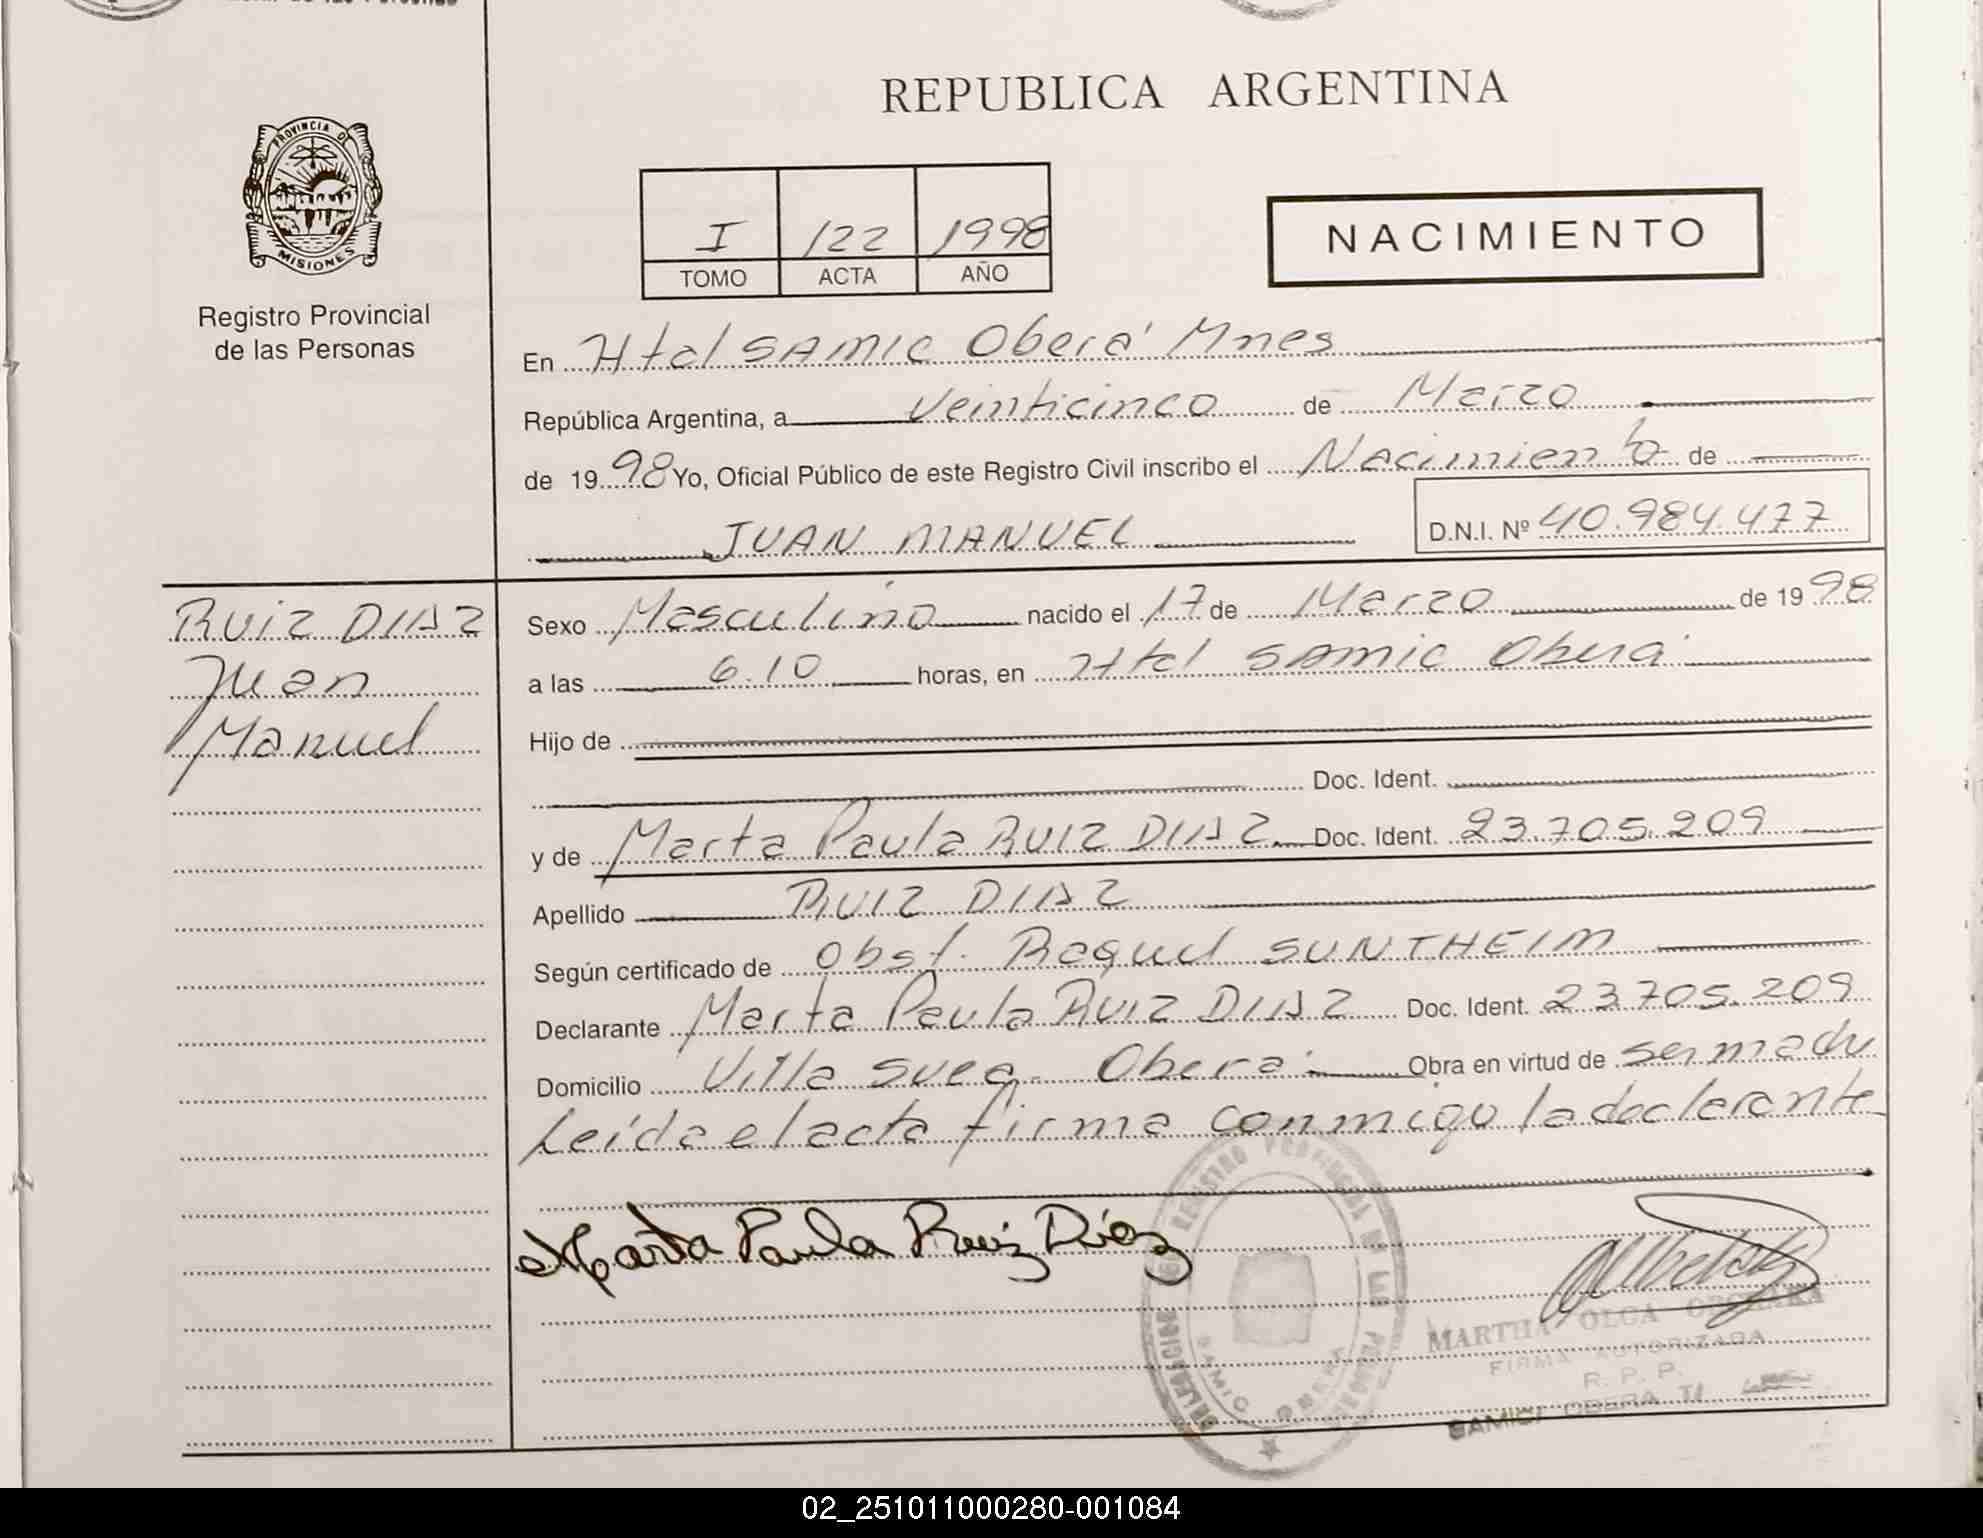 REPUBLICA ARGENTINA
PROVINCIA DE
MISIONES
Registro Provincial
de las Personas
I 122 1998
TOMO ACTA AÑO
NACIMIENTO
En Htal SAMIC Oberá Mnes
República Argentina, a Veinticinco de Marzo
de 1998 Yo, Oficial Público de este Registro Civil inscribo el Nacimiento de
JUAN MANUEL D.N.I. Nº 40.984.477
RUIZ DIAZ
Juan
Manuel
Sexo Masculino nacido el 17 de Marzo de 1998
a las 6.10 horas, en Htal SAMIC Oberá
Hijo de
Doc. Ident.
y de Marta Paula RUIZ DIAZ Doc. Ident. 23.705.209
Apellido RUIZ DIAZ
Según certificado de Obst. Raquel SUNTHEIM
Declarante Marta Paula RUIZ DIAZ Doc. Ident. 23.705.209
Domicilio Villa Svea - Oberá Obra en virtud de ser madre
Leída el acta firma conmigo la declarante
Marta Paula Ruiz Díaz
DELEGACION REGISTRO PROVINCIAL DE LAS PERSONAS
SAMIC OBERA
MARTHA OLGA
FIRMA AUTORIZADA
R. P. P.
SAMIC OBERA
02_251011000280-001084